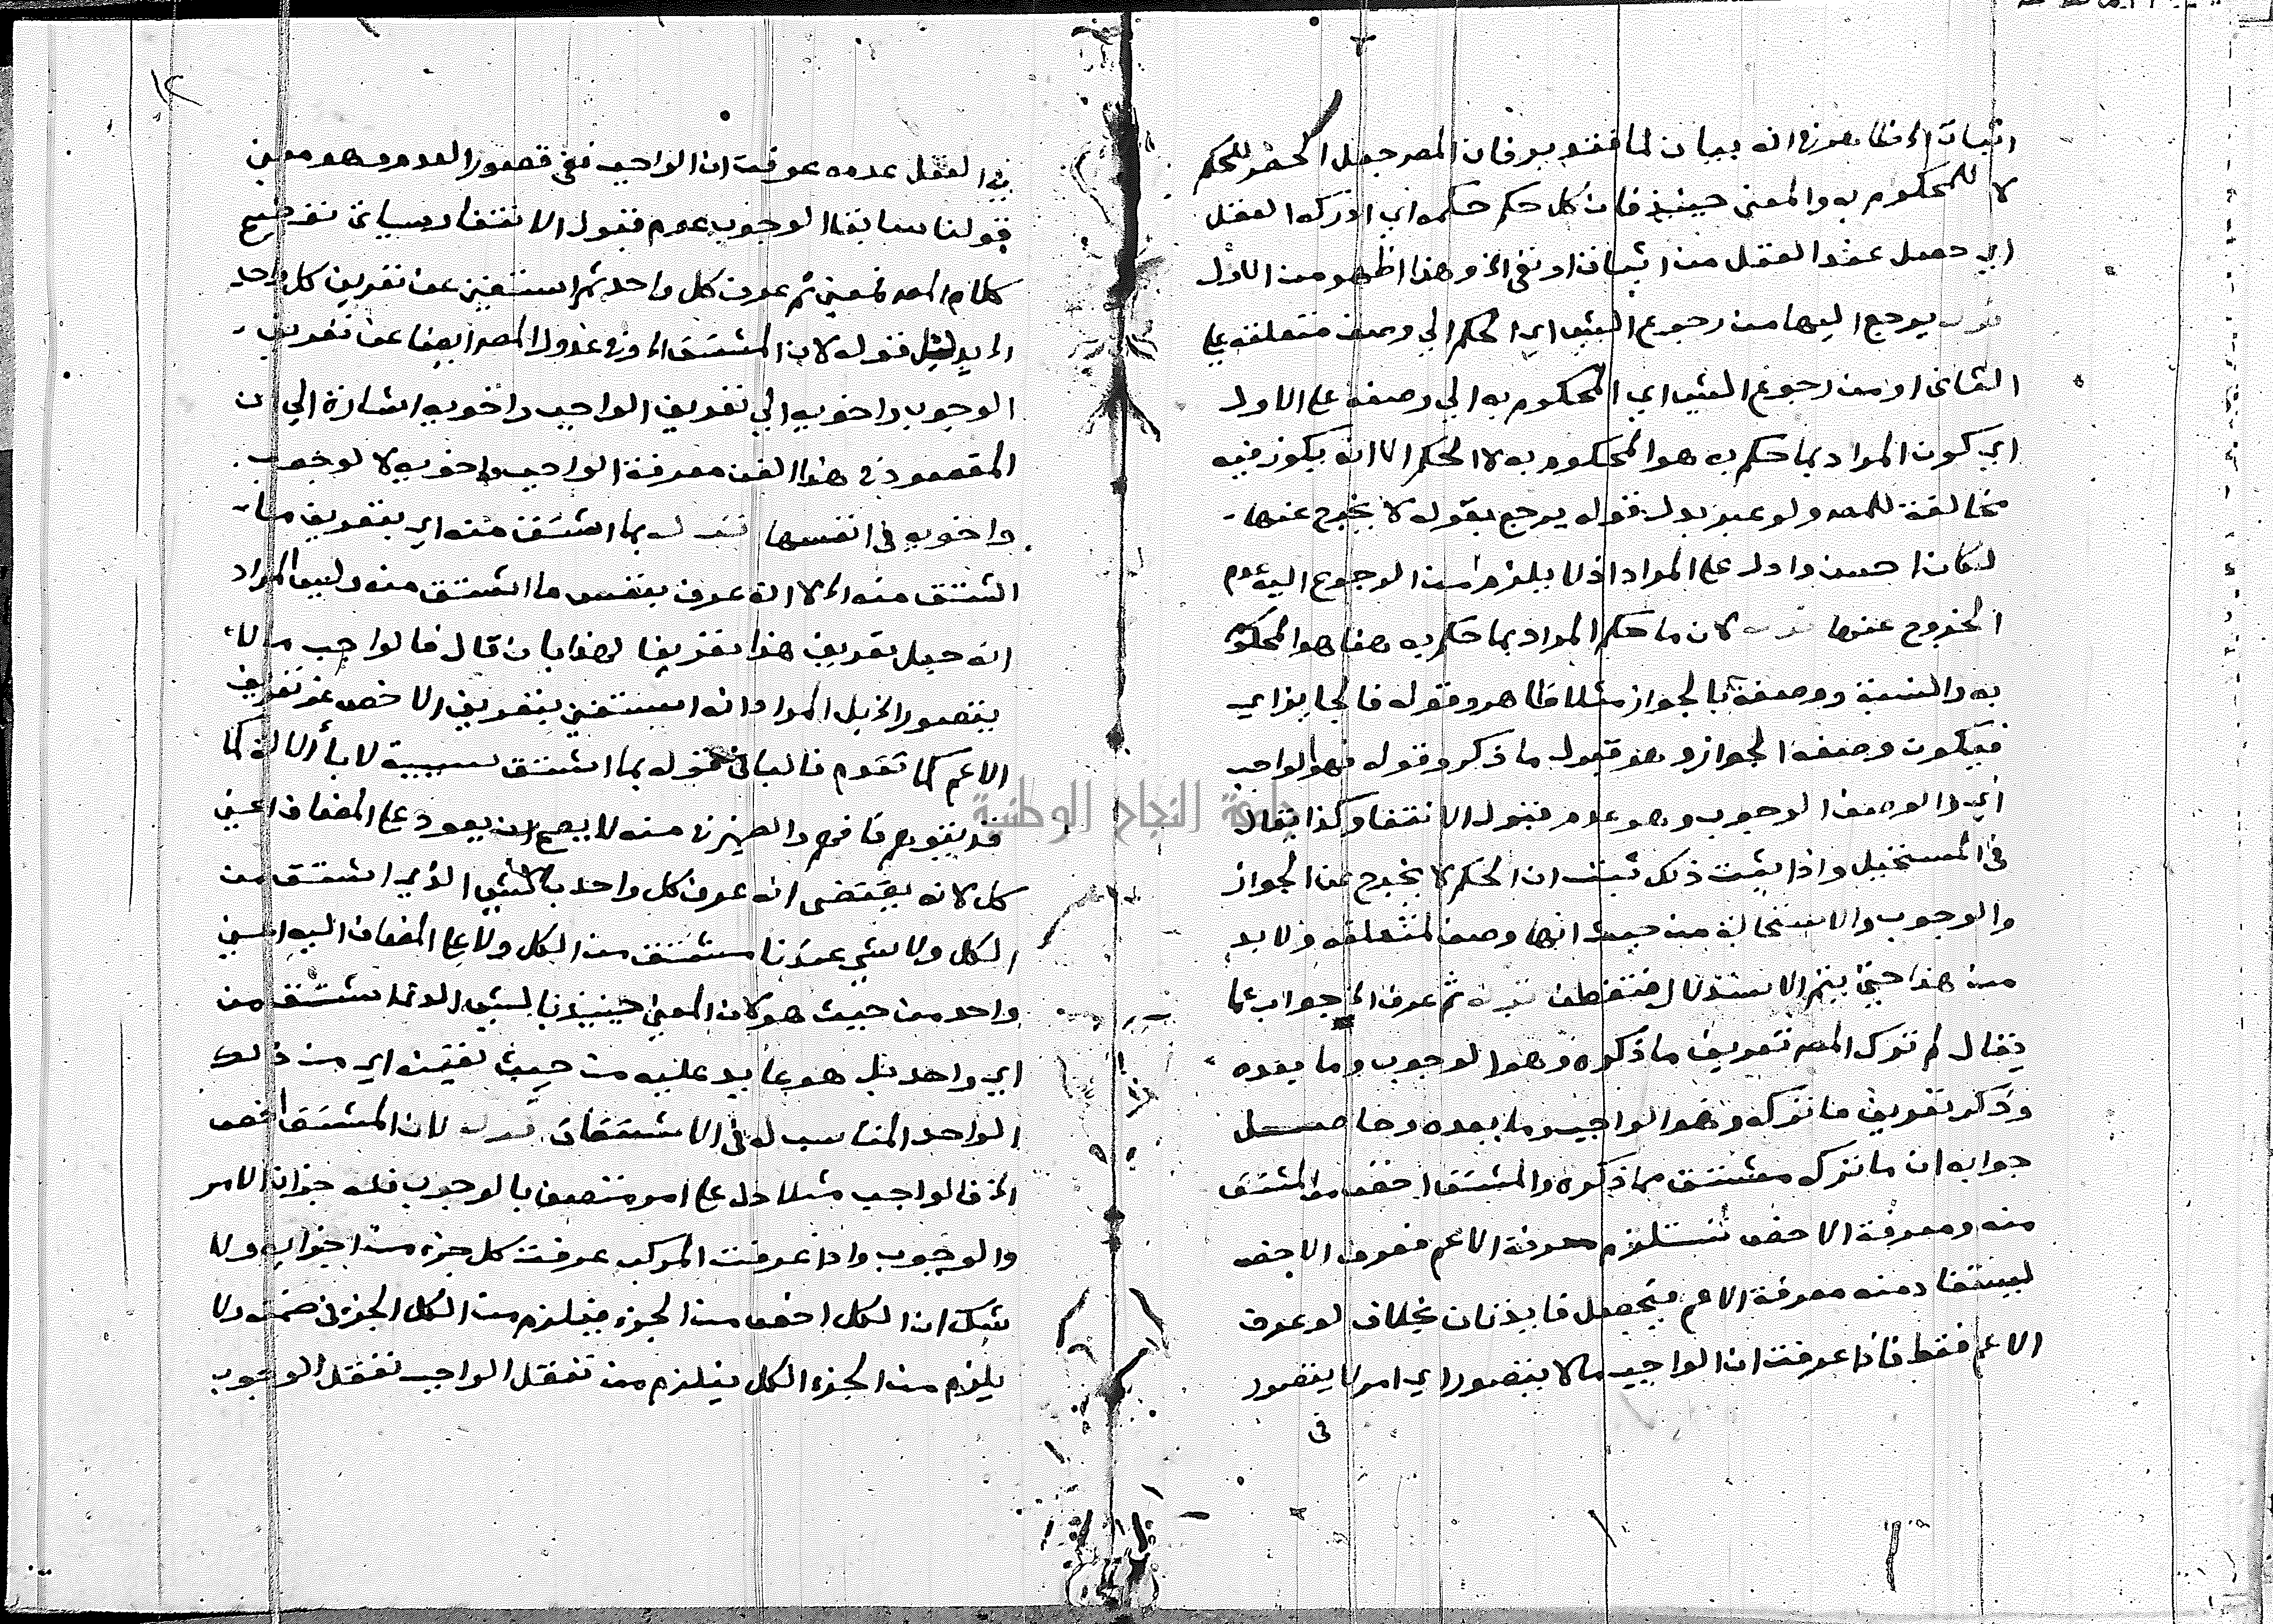 اثبات الخ ظاهره انه بيان لما فقد بر فان المصـ جعل الحصر للحكم
لا للمحكوم به والمعنى حينئذ فان كل حكم حكمه اي ادركه العقل
اي حصل عند العقل من اثبات او نفي الخ وهذا اظهر من الاول
قوله يرجع اليها من رجوع الشي اي الحكم الي وصف متعلقه علي
الثاني او من رجوع الشي اي المحكوم به الي وصفه علي الاول
اي كون المراد بما حكم به هو المحكوم به لا الحكم الا انه يكون فيه
مخالفة للمصـ ولو عبر بدل قوله يرجع بقوله لا يخرج عنها
لكان احسن وادل علي المراد اذ لا يلزم من الرجوع اليه عدم
الخروج عنها قوله لان ما حكم المراد بما حكم به هنا هو المحكوم
به والنسبة ووصفه بالجواز مثلا ظاهر وقوله فالجايز اي
فيكون وصفه الجواز وهو قبول ما ذكر وقوله فهو الواجب
اي والوصف الوجوب وهو عدم قبول الانتفا وكذا يقال
في المستحيل واذا ثبت ذلك ثبت ان الحكم لا يخرج عن الجواز
والوجوب والاستحالة من حيث انها وصف لمتعلقه ولا بد
من هذا حتى يتم الاستدلال فتفطن قوله ثم عرف الخ جواب عما
يقال لم ترك المصـ تعريف ما ذكره وهو الوجوب وما بعده
وذكر تعريف ما تركه وهو الواجب وما بعده وحاصل
جوابه ان ما تركه مشتق مما ذكره والمشتق اخص من المشتق
منه ومعرفة الاخص تستلزم معرفة الاعم فعرف الاخص
ليستفاد منه معرفة الاعم فيحصل فايدتان بخلاف لو عرف
الاعم فقط فاذا عرفت ان الواجب ما لا يتصور اي امر لا يتصور
في
١٢
في العقل عدمه عرفت ان الواجب نفي تصور العدم وهو معنى
قولنا سابقا الوجوب عدم قبول الانتفا وسياتي توضيح
كلام المصـ فمعنى ثم عرف كل واحد ثم استغنى عن تعريف كل واحد
الخ بدليل قوله لان المشتق الخ وفي عدول المصـ ايضا عن تعريف
الوجوب واخويه الي تعريف الواجب واخويه اشارة الي ان
المقصود في هذا الفن معرفة الواجب واخويه لا الوجوب
واخويه في انفسها قوله بما اشتق منه اي بتعريف ما
اشتق منه الخ لا انه عرف بنفس ما اشتق منه وليس المراد
انه جعل تعريف هذا تعريفا لهذا بان قال فالواجب ما لا
يتصور الخ بل المراد انه استغنى بتعريف الاخص عن تعريف
الاعم كما تقدم فالبا في قوله بما اشتق سببية لا با الالة كما
قد يتوهم فافهم والضمير في منه لا يصح ان يعود علي المضاف اعني
كل لانه يقتضي انه عرف كل واحد بالشي الذي اشتق من
الكل ولا شي عندنا مشتق من الكل ولا علي المضاف اليه اعني
واحد من حيث هو لان المعنى حينئذ بالشي الذي اشتق من
اي واحد بل هو عايد عليه من حيث تعينه اي من ذلك
الواحد المناسب له في الاشتقاق قوله لان المشتق اخص
الخ فالواجب مثلا دل علي امر متصف بالوجوب فله جزان الامر
والوجوب واذا عرفت المركب عرفت كل جزء من اجزايه ولا
شك ان الكل اخص من الجزء فيلزم من الكل الجزء في ضمنه ولا
يلزم من الجزء الكل فيلزم من تعقل الواجب تعقل الوجوب
جامعة النجاح الوطنية